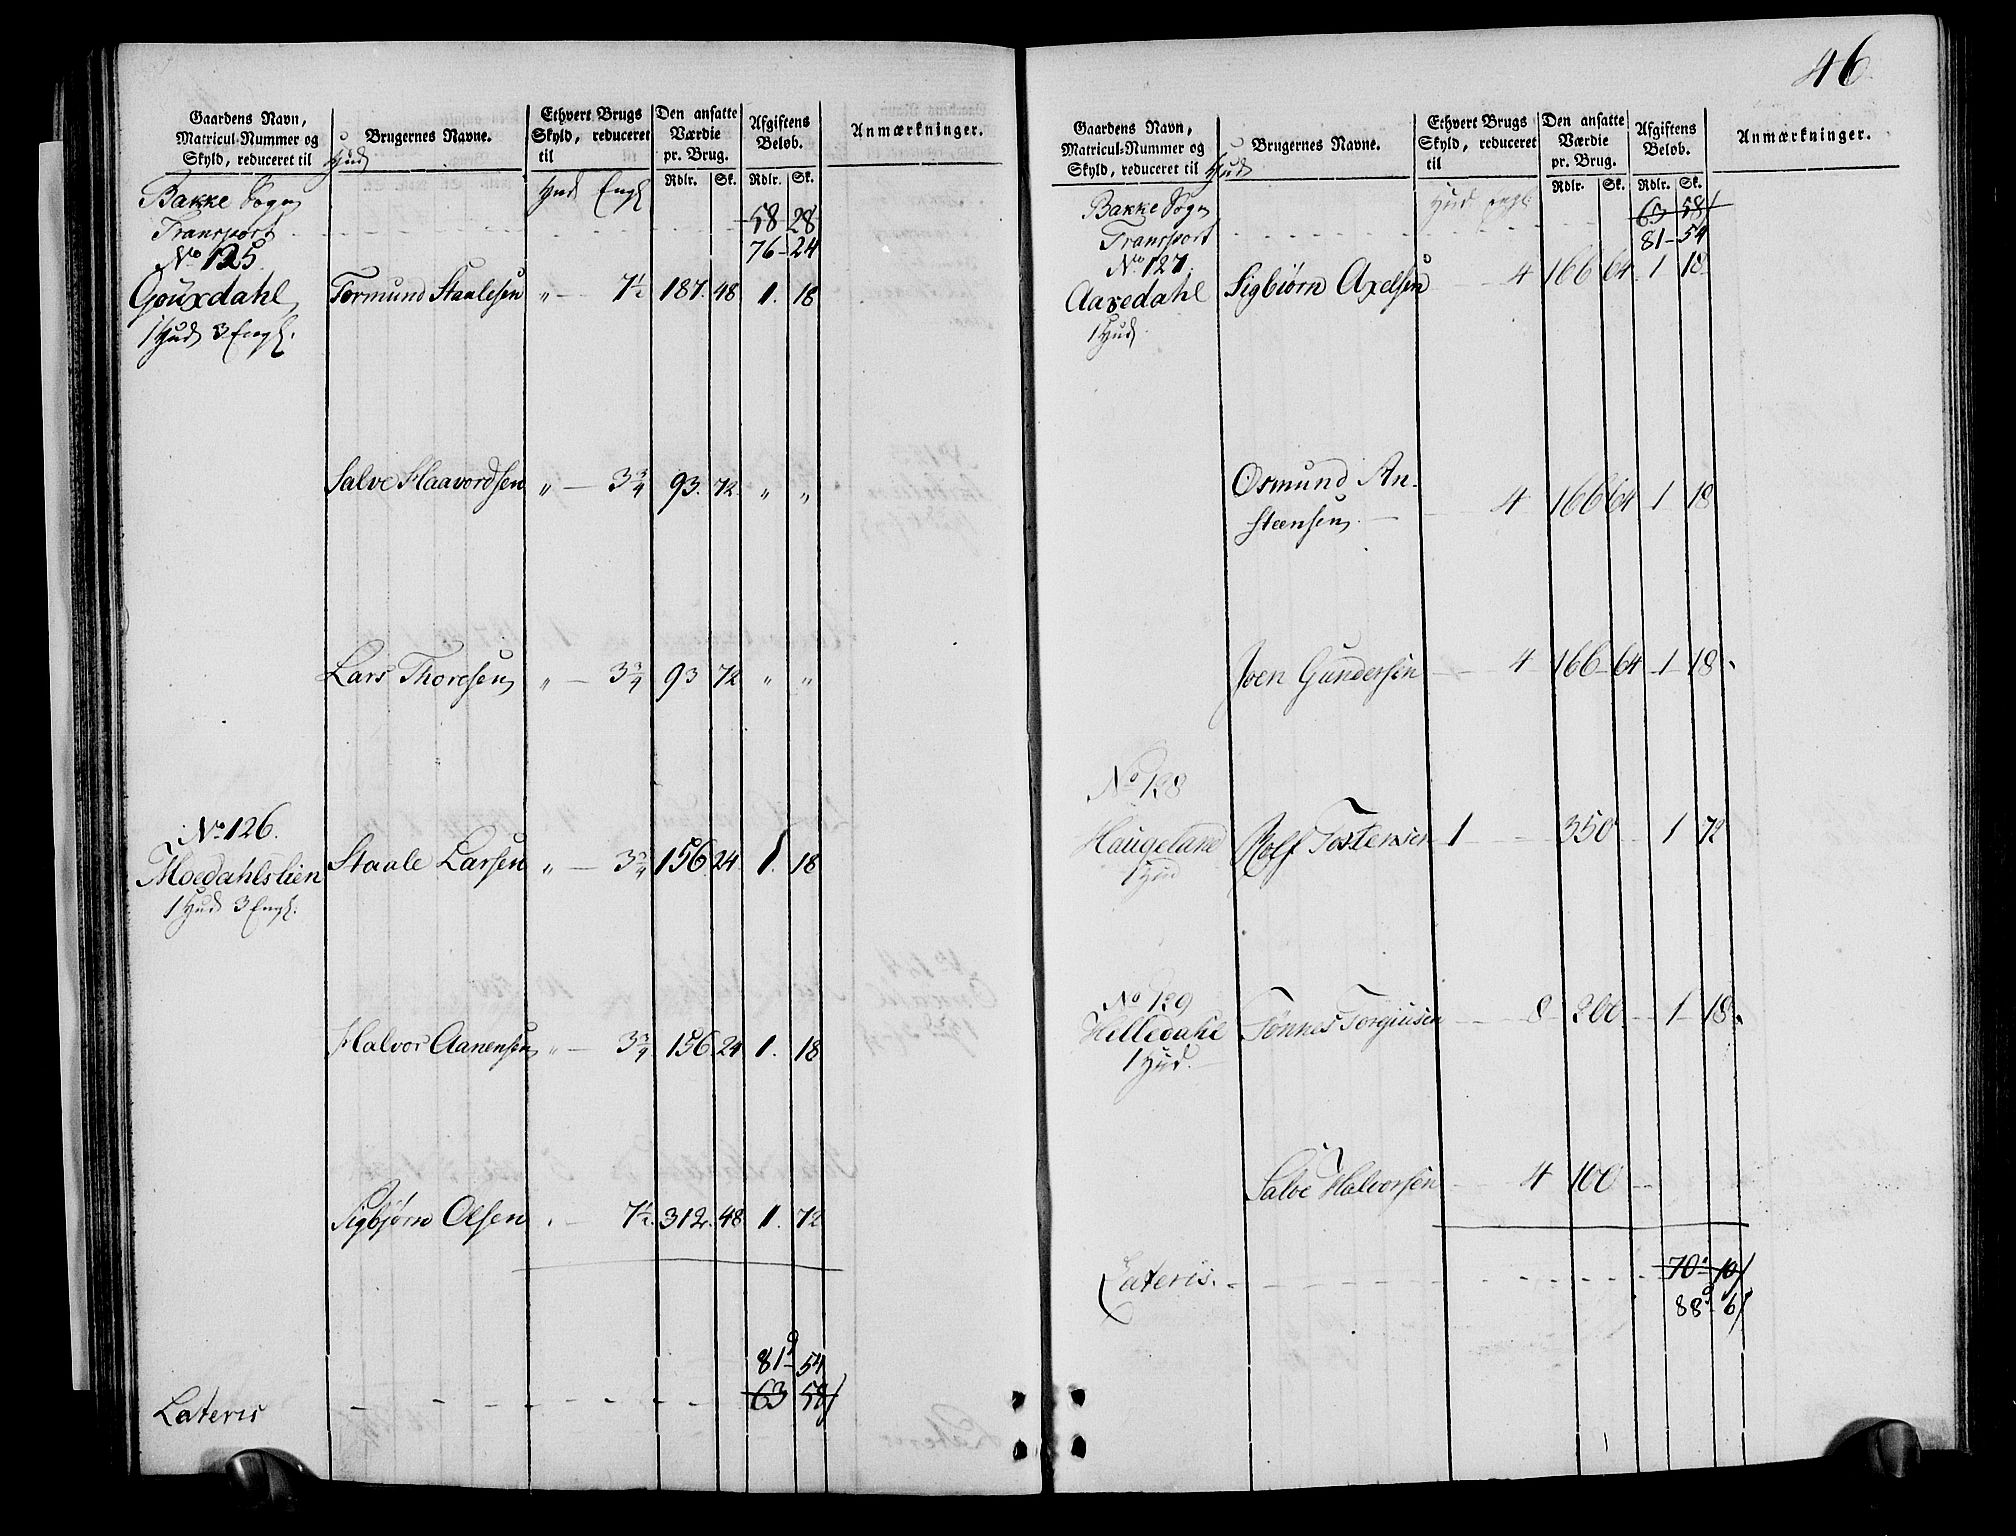 Gaardens Navn, Matricul-Nummer og Skyld, reduceret til Hud
Brugernes Navne.
Ethvert Brugs Skyld, reduceret til
Den ansatte Værdie pr. Brug.
Afgiftens Beløb.
Anmærkninger.
Rdlr. Sk. Rdlr. Sk.
Hud Engl
Bakke Sogn
Transport 58 28
76 24
No 125.
Tormund Staalesen „ 7½ 187. 48 1. 18
1 Hud 3 Engl.
Salve Haavordsen „ 3¾ 93. 72 „ „
Lars Thoresen „ 3¾ 93 72 „ „
No 126.
Moedahlslien Staale Larsen „ 3¾ 156 24 1. 18
1 Hud 3 Engl.
Halvor Aanensen „ 3¾ 156 24 1. 18
Sigbjørn Olsen 7½ 312. 48 1. 72
81 54
Lateris 63 58
46
Gaardens Navn, Matricul-Nummer og Skyld, reduceret til Hud
Brugernes Navne.
Ethvert Brugs Skyld, reduceret til
Den ansatte Værdie pr. Brug.
Afgiftens Beløb.
Anmærkninger.
Rdlr. Sk. Rdlr. Sk.
Hud Engl
Bakke Sogn 63 58
Transport 81 54
No 127.
Sigbiørn Axelsen 4 166 64 1 18
1 Hud.
Osmund An-
steensen 4 166 64 1 18
Joen Gundersen 4 166 64 1 18
No 128
Haugeland Rolf Tostensen 1 350 1 72
1 Hud
No 129
Helledahl Tønnes Torgiusen 8 200 1 18
1 Hud.
Salve Halvorsen 4 100
Lateris. 70 10
88 6